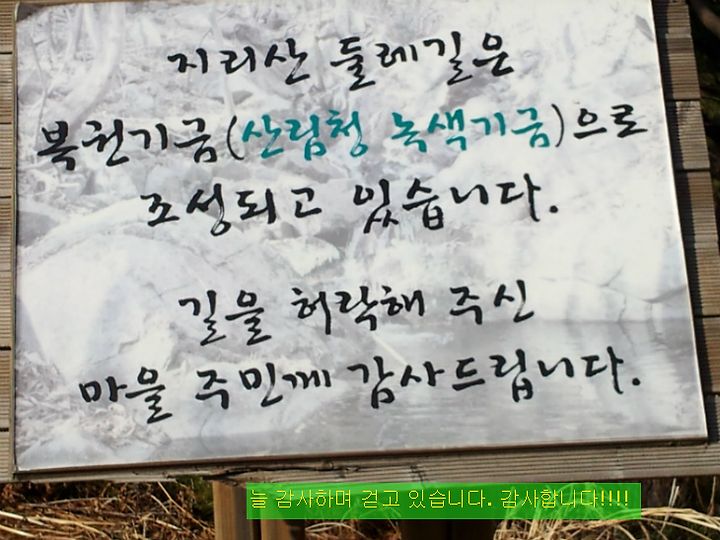 지리산 둘레길은
복권기금(산림청 녹색기금)으로
조성되고 있습니다.
길을 허락해 주신
마을 주민께 감사드립니다.
늘 감사하며 걷고 있습니다. 감사합니다!!!!